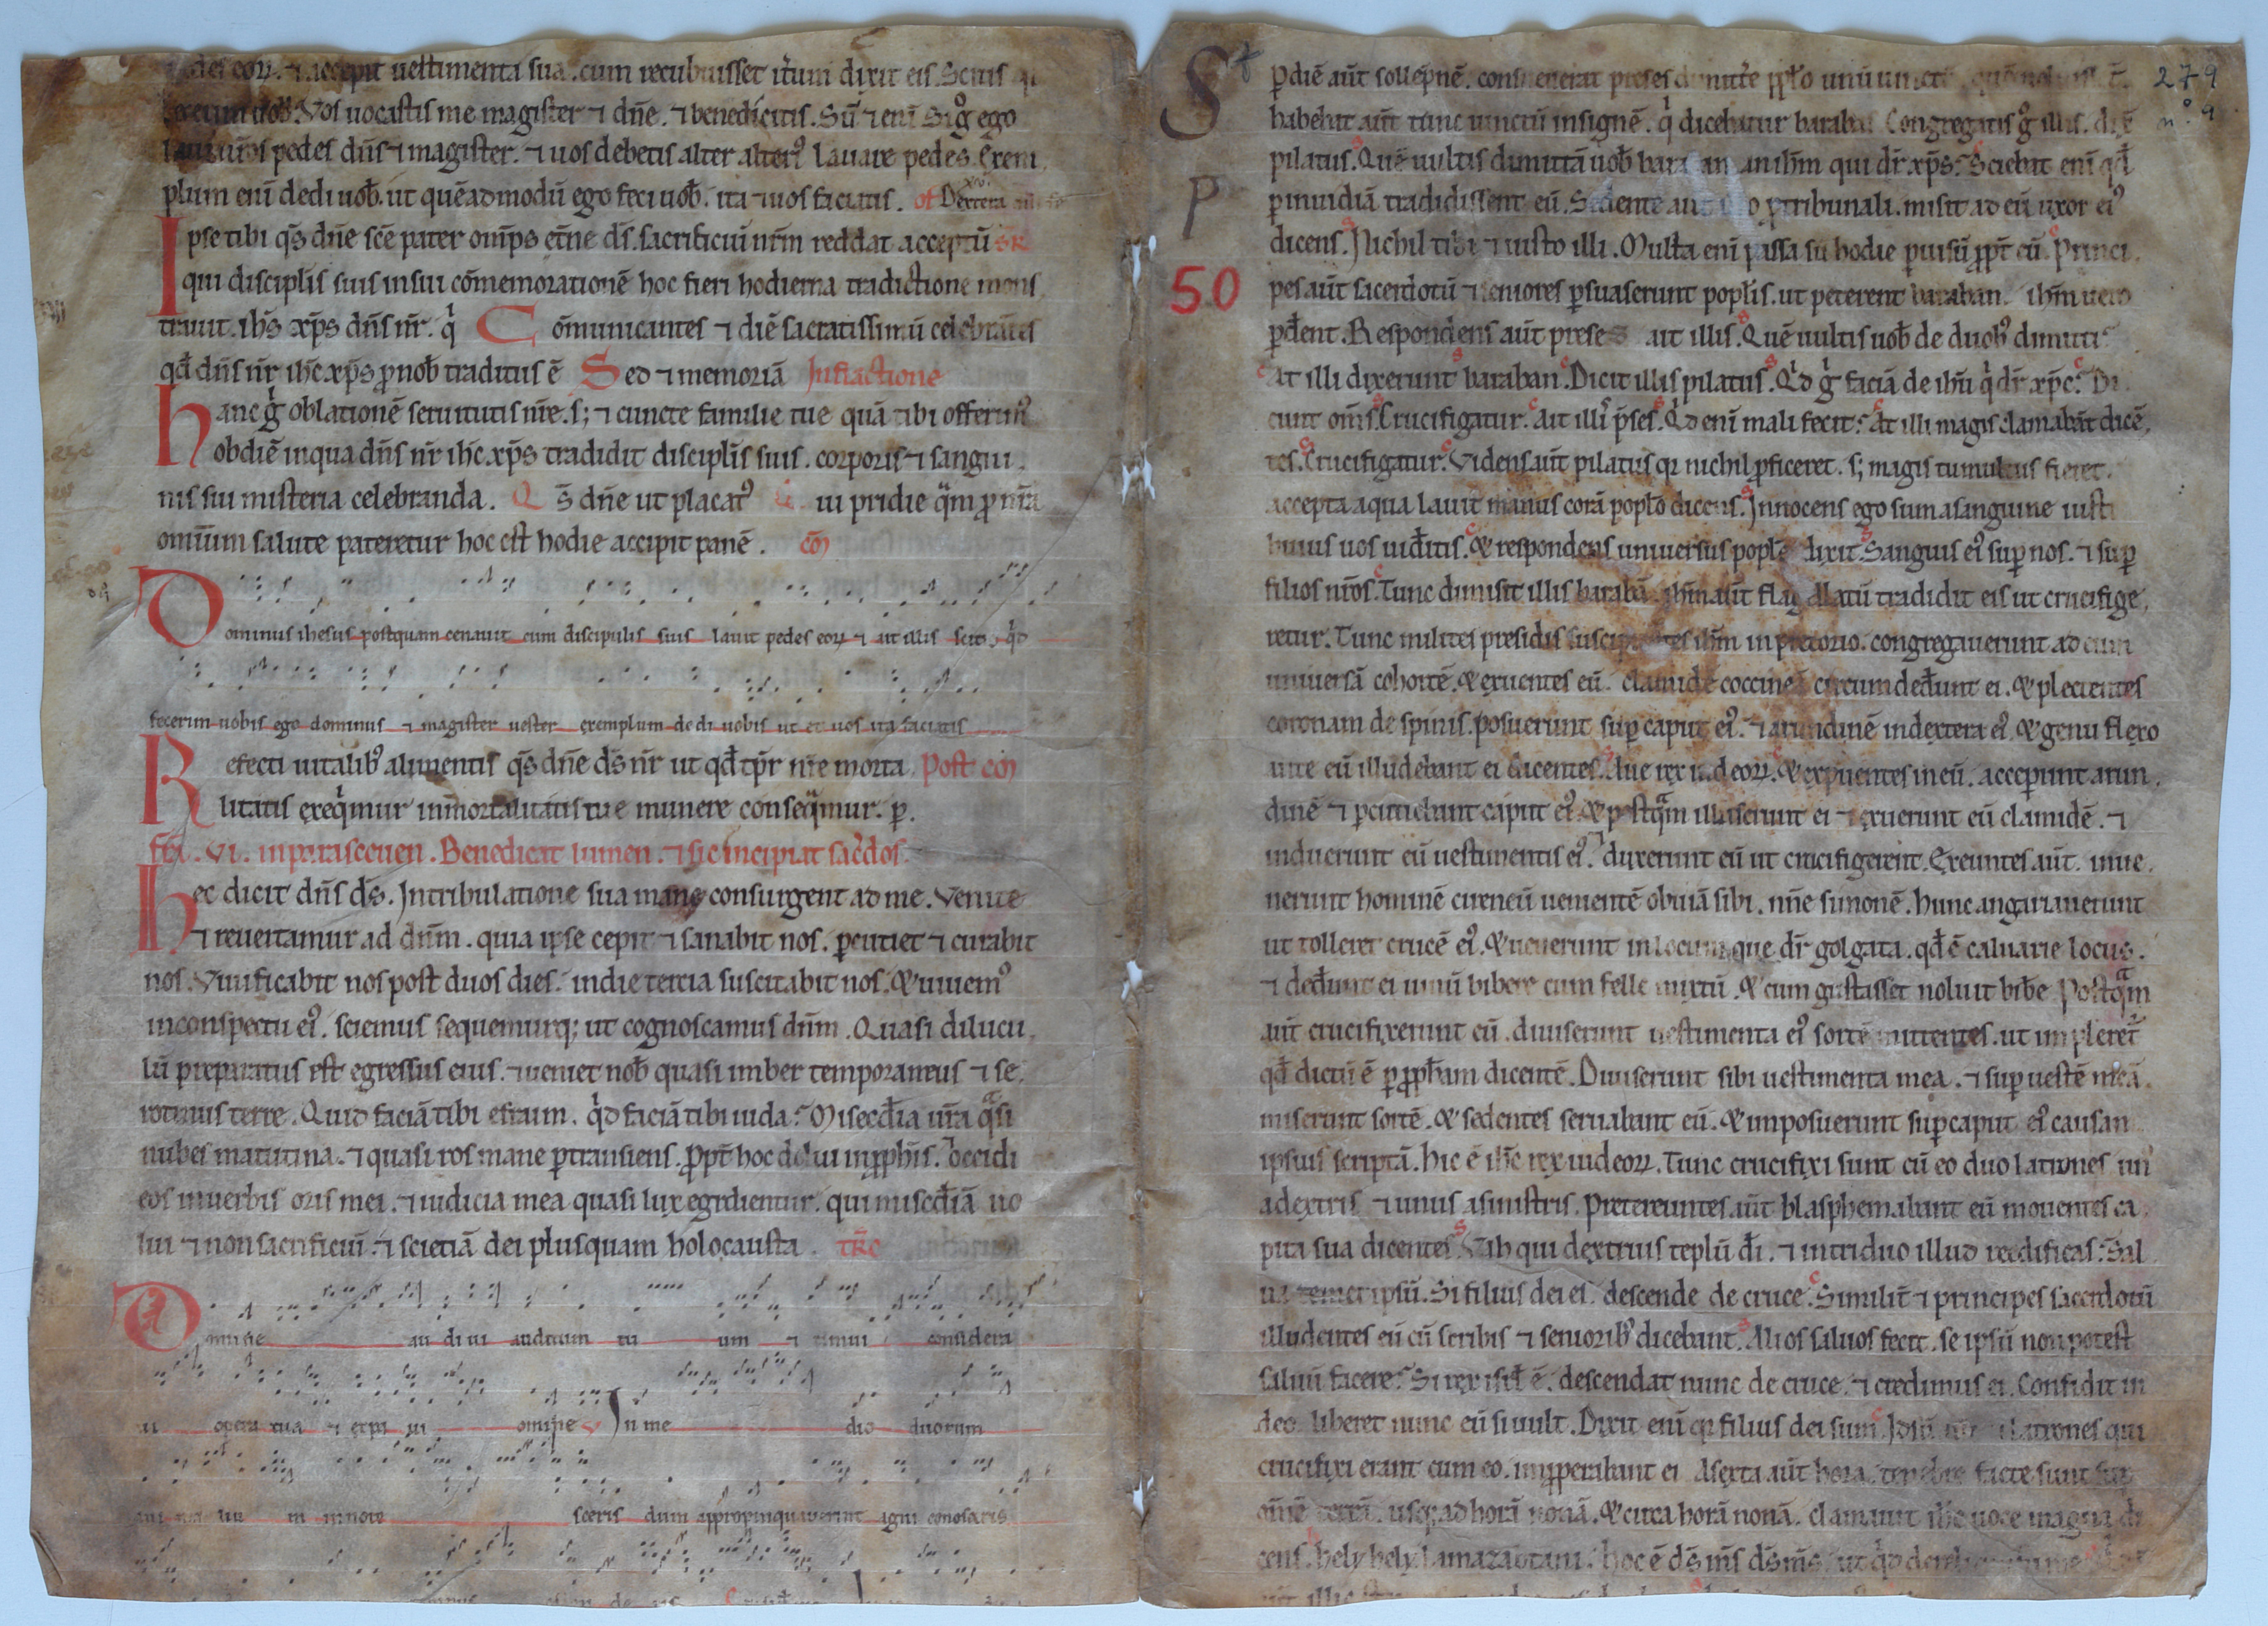 accepit uestimenta sua. cum recubuisset it̃um dixit eis. Scitis
uob̃. Vos uocastis me magister ⁊ dñe. ⁊ benedicitis. Sũ ⁊ enĩ Si gͦ ego
laui ur̃os pedes dñs ⁊ magister. ⁊ uos debetis alter alteriꝰ lauare pedes. Exem
plum enĩ dedi uob̃. ut quẽadmodũ ego feci uob̃. ita ⁊ uos faciatis. of Dextera
Ipse tibi qs̃ dñe sc̃e pater om̃ps et̃ne ds̃. sacrificiũ nr̃m reddat acceptũ
qui disciplis̃ suis in sui cõmemorationẽ hoc fieri hodierna traditione mons
trauit. ihs̃ xp̃s dñs nr̃. q̇ Cõmunicantes ⁊ diẽ sacratissimũ celebrãtes
qđ dñs nr̃ ihc̃ xp̃s ꝓ nob̃ traditus ẽ Sed ⁊ memoriã Infractione
hanc gͥ oblationẽ seruitutis nr̃e. s; ⁊ cuncte familie tue quã tibi offerimꝰ
ob diẽ in qua dñs nr̃ ihc̃ xp̃s tradidit disciplis̃ suis. corporis ⁊ sangui
nis sui misteria celebranda. Qs̃ dñe ut placatꝰ ui pridie qͣm ꝓ nr̃a
omium salute pateretur hoc est hodie accipit panẽ. cõ
Dominus ihesus postquam cenauit cum discipulis suis lauit pedes eoꝝ ⁊ ait illis scitis qͥd
fecerim uobis ego dominus ⁊ magister uester exemplum dedi uobis ut et uos ita faciatis
Refecti uitalibꝰ alimentis qs̃ dñe ds̃ nr̃ ut qđ tp̃r nr̃e morta Post cõ
litatis exeqͥmur inmortalitatis tue munere conseqͣmur. p̲.
fr̃i. VI. in parasceuen. Benedicat lumen. ⁊ sic incipiat sacͬdos.
hec dicit dñs ds̃. In tribulatione sua mane consurgent ad me. Venite
⁊ reuertamur ad dñm. quia ipse cepit ⁊ sanabit nos. ꝑcutiet ⁊ curabit
nos. Viuificabit nos post duos dies. in die tercia suscitabit nos. & uiuemꝰ
in conspectu eiꝰ. sciemus sequemurq; ut cognoscamus dñm. Quasi dilucu
lũ preparatus est egressus eius. ⁊ ueniet nob̃ quasi imber temporaneus ⁊ se
rotinus terre. Quid faciã tibi efraim. qͥd faciã tibi iuda? Misec̃dia ur̃a qͣsi
nubes matutina. ⁊ quasi ros mane ꝑtransiens. ꝓpt̃ hoc dolaui in ꝓph̃is. occidi
eos in uerbis oris mei. ⁊ iudicia mea quasi lux egredientur. qui misec̃diã uo
lui ⁊ non sacrificiũ. ⁊ scietiã dei plusquam holocausta. tr̃c
Domine au di ui auditum tu um ⁊ timui considera
ui opera tua ⁊ expa ui omine V In me dio duorum
ani ma liu m innote sceris dum appropinquauerint anni cognosceris
S 279
ꝑ diẽ aũt sollep̃nẽ. consueuerat preses dimitt̃e pp̃lo unũ uinctũ
habebat aũt tunc uinctũ insignẽ. q̇ dicebatur baraban. Congregatis gͦ illis. dix̃ nº 9
pilatus. Quẽ uultis dimittã uob̃ an ihm̃ qui dr̃ xp̃s? Sciebat enĩ qđ
P ꝑ inuidiã tradidissent eũ. Sedente ꝓ tribunali. misit ad eũ uxor eiꝰ
dicens. Nichil tibi ⁊ iusto illi. Multa enĩ passa sũ hodie ꝑ uisũ ꝓpt̃ eũ. Princi
50 pes aũt sacerdotũ ⁊ seniores ꝑsuaserunt poplis̃. ut peterent baraban. ihm̃ uero
ꝑđent. Respondens aũt preses ait illis. Quẽ uultis uob̃ de duobꝰ dimitti
At illi dixerunt baraban. Dicit illis pilatus. Qͥd gͥ faciã de ihũ q̇ dr̃ xp̃c? Di
cunt oms̃. Crucifigatur. Ait illiˢ p̃ses. Qͥd enĩ mali fecit? At illi magis clamabãt dicẽ
tes. Crucifigatur. Videns aũt pilatus qꝛ nichil ꝓficeret. s; magis tumultus fieret.
accepta aqua lauit manus corã poplo dicens. Innocens ego sum a sanguine iusti
huius uos uiđitis. & respondens uniuersus poplẽ dixit. Sanguis eiꝰ suꝑ nos. ⁊ suꝑ
filios nr̃os. Tunc dimisit illis barabã. ihm̃ aũt flagellatũ tradidit eis ut crucifige
retur. Tunc milites presidis suscipientes ihm̃ in pretorio. congregauerunt ad eum
uniuersã cohortẽ. & exuentes eũ. clamidẽ coccineã circumdeđunt ei. & plectentes
coronam de spinis. posuerunt suꝑ caput eiꝰ. ⁊ arundinẽ in dextera eiꝰ. & genu flexo
ante eũ illudebant ei dicentes. Aue rex iudeoꝝ. & expuentes in eũ. acceperunt arun
dinẽ ⁊ ꝑcutiebant caput eiꝰ. & postqͣm illuserunt ei ⁊ exuerunt eũ clamidẽ. ⁊
induerunt eũ uestimentis eiꝰ. ⁊ duxerunt eũ ut crucifigerent. Exeuntes aũt. inue
nerunt hominẽ cireneũ uenientẽ obuiã sibi. nñe simonẽ. hunc angariauerunt
ut tolleret crucẽ eiꝰ. & uenerunt in locum que dr̃ golgata. qđ ẽ caluarie locus.
⁊ deđunt ei uinũ bibere cum felle mixtũ. & cum gustasset noluit bibe Postqͣm
aũt crucifixerunt eũ. diuiserunt uestimenta eiꝰ sortẽ mittentes. ut impleret̃
qđ dictũ ẽ ꝑ ꝓph̃am dicentẽ. Diuiserunt sibi uestimenta mea. ⁊ suꝑ uestẽ meã
miserunt sortẽ. & sedentes seruabant eũ. & imposuerunt suꝑ caput eiꝰ causam
ipsius scriptã. hic ẽ ihc̃ rex iudeoꝝ. Tunc crucifixi sunt cũ eo duo latrones unꝰ
a dextris ⁊ unus a sinistris. Pretereuntes aũt blasphemabant eũ mouentes ca
pita sua dicentes. Vah qui dextruis teplũ dĩ. ⁊ in triduo illud reedificas. Sal
ua temet ipsũ. Si filius dei es descende de cruce. Similit̃ ⁊ principes sacerdotũ
illudentes eũ cũ scribis ⁊ senioribꝰ dicebant. Alios saluos fecit. se ipsũ non potest
saluũ facere? Si rex isrl̃ ẽ. descendat nunc de cruce. ⁊ credimus ei. Confidit in
deo. liberet nunc eũ si uult. Dixit enĩ qꝛ filius dei sum. latrones qui
crucifixi erant cum eo. imꝓperabant ei A sexta aũt hora tenebre facte sunt suꝑ
om̃ẽ terrã. usq; ad horã nonã. & circa horã nonã. clamauit ihc̃ uoce magna di
cens. hely hely lamazabtani. hoc ẽ ds̃ ms̃ ds̃ ms̃ ut qͥd